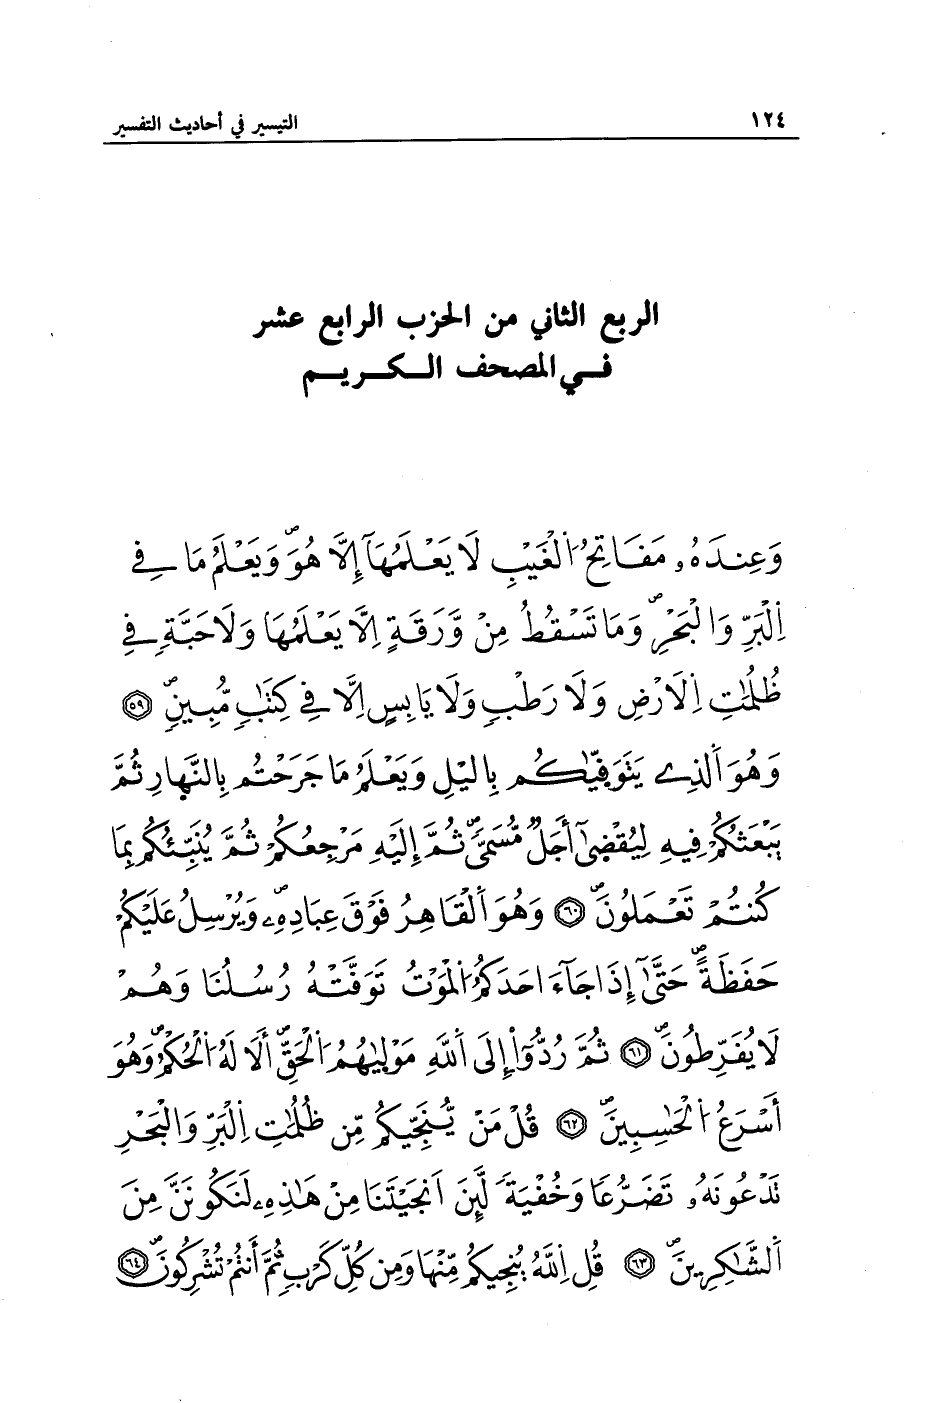 ١٢٤ التيسير في أحاديث التفسير
الربع الثاني من الحزب الرابع عشر
في المصحف الكريم
وَعِندَهُۥ مَفَاتِحُ اُ۬لْغَيْبِ لَا يَعْلَمُهَآ إِلَّا هُوَۖ وَيَعْلَمُ مَا فِے
اِ۬لْبَرِّ وَالْبَحْرِۖ وَمَا تَسْقُطُ مِنْ وَّرَقَةٍ اِلَّا يَعْلَمُهَا وَلَا حَبَّةٖ فِے
ظُلُمَٰتِ اِ۬لَارْضِ وَلَا رَطْبٖ وَلَا يَابِسٍ اِلَّا فِے كِتَٰبٖ مُّبِينٖۖ ٥٩
وَهُوَ اَ۬لذِے يَتَوَفّ۪يٰكُم بِاليْلِ وَيَعْلَمُ مَا جَرَحْتُم بِالنَّهارِ ثُمَّ
يَبْعَثُكُمْ فِيهِ لِيُقْضَىٰٓ أَجَلٞ مُّسَمّيٗۖ ثُمَّ إِلَيْهِ مَرْجِعُكُمْ ثُمَّ يُنَبِّئُكُم بِمَا
كُنتُمْ تَعْمَلُونَۖ ٦٠ وَهُوَ اَ۬لْقَاهِرُ فَوْقَ عِبَادِهِۦۖ وَيُرْسِلُ عَلَيْكُمْ
حَفَظَةًۖ حَتَّىٰٓ إِذَا جَآءَ احَدَكُمُ اُ۬لْمَوْتُ تَوَفَّتْهُ رُسُلُنَا وَهُمْ
لَا يُفَرِّطُونَۖ ٦١ ثُمَّ رُدُّوٓاْ إِلَى اَ۬للَّهِ مَوْل۪يٰهُمُ اُ۬لْحَقِّۖ أَلَا لَهُ اُ۬لْحُكْمُۖ وَهُوَ
أَسْرَعُ اُ۬لْحَٰسِبِينَۖ ٦٢ قُلْ مَنْ يُّنَجِّيكُم مِّن ظُلُمَٰتِ اِ۬لْبَرِّ وَالْبَحْرِ
تَدْعُونَهُۥ تَضَرُّعاٗ وَخُفْيَةٗ لَّئِنَ اَنجَيْتَنَا مِنْ هَٰذِهِۦ لَنَكُونَنَّ مِنَ
اَ۬لشَّٰكِرِينَۖ ٦٣ قُلِ اِ۬للَّهُ يُنجِيكُم مِّنْهَا وَمِن كُلِّ كَرْبٖ ثُمَّ أَنتُمْ تُشْرِكُونَۖ ٦٤